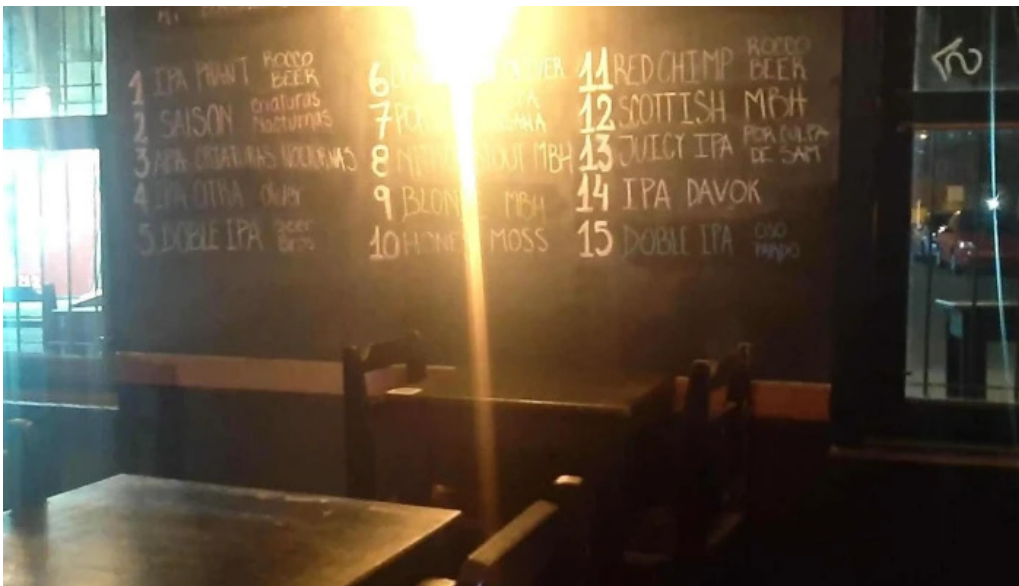 1 IPA PHANT ROCCO BEER
2 SAISON Criaturas Nocturnas
3 APA CRIATURAS NOCTURNAS
4 IPA CITRA
5 DOBLE IPA Beer Bros
6
7
8 STOUT MBH
9 BLONDE MBH
10 HONEY MOSS
11 RED CHIMP ROCCO BEER
12 SCOTTISH MBH
13 JUICY IPA POR CULPA DE SAM
14 IPA DAVOK
15 DOBLE IPA OSO PARDO